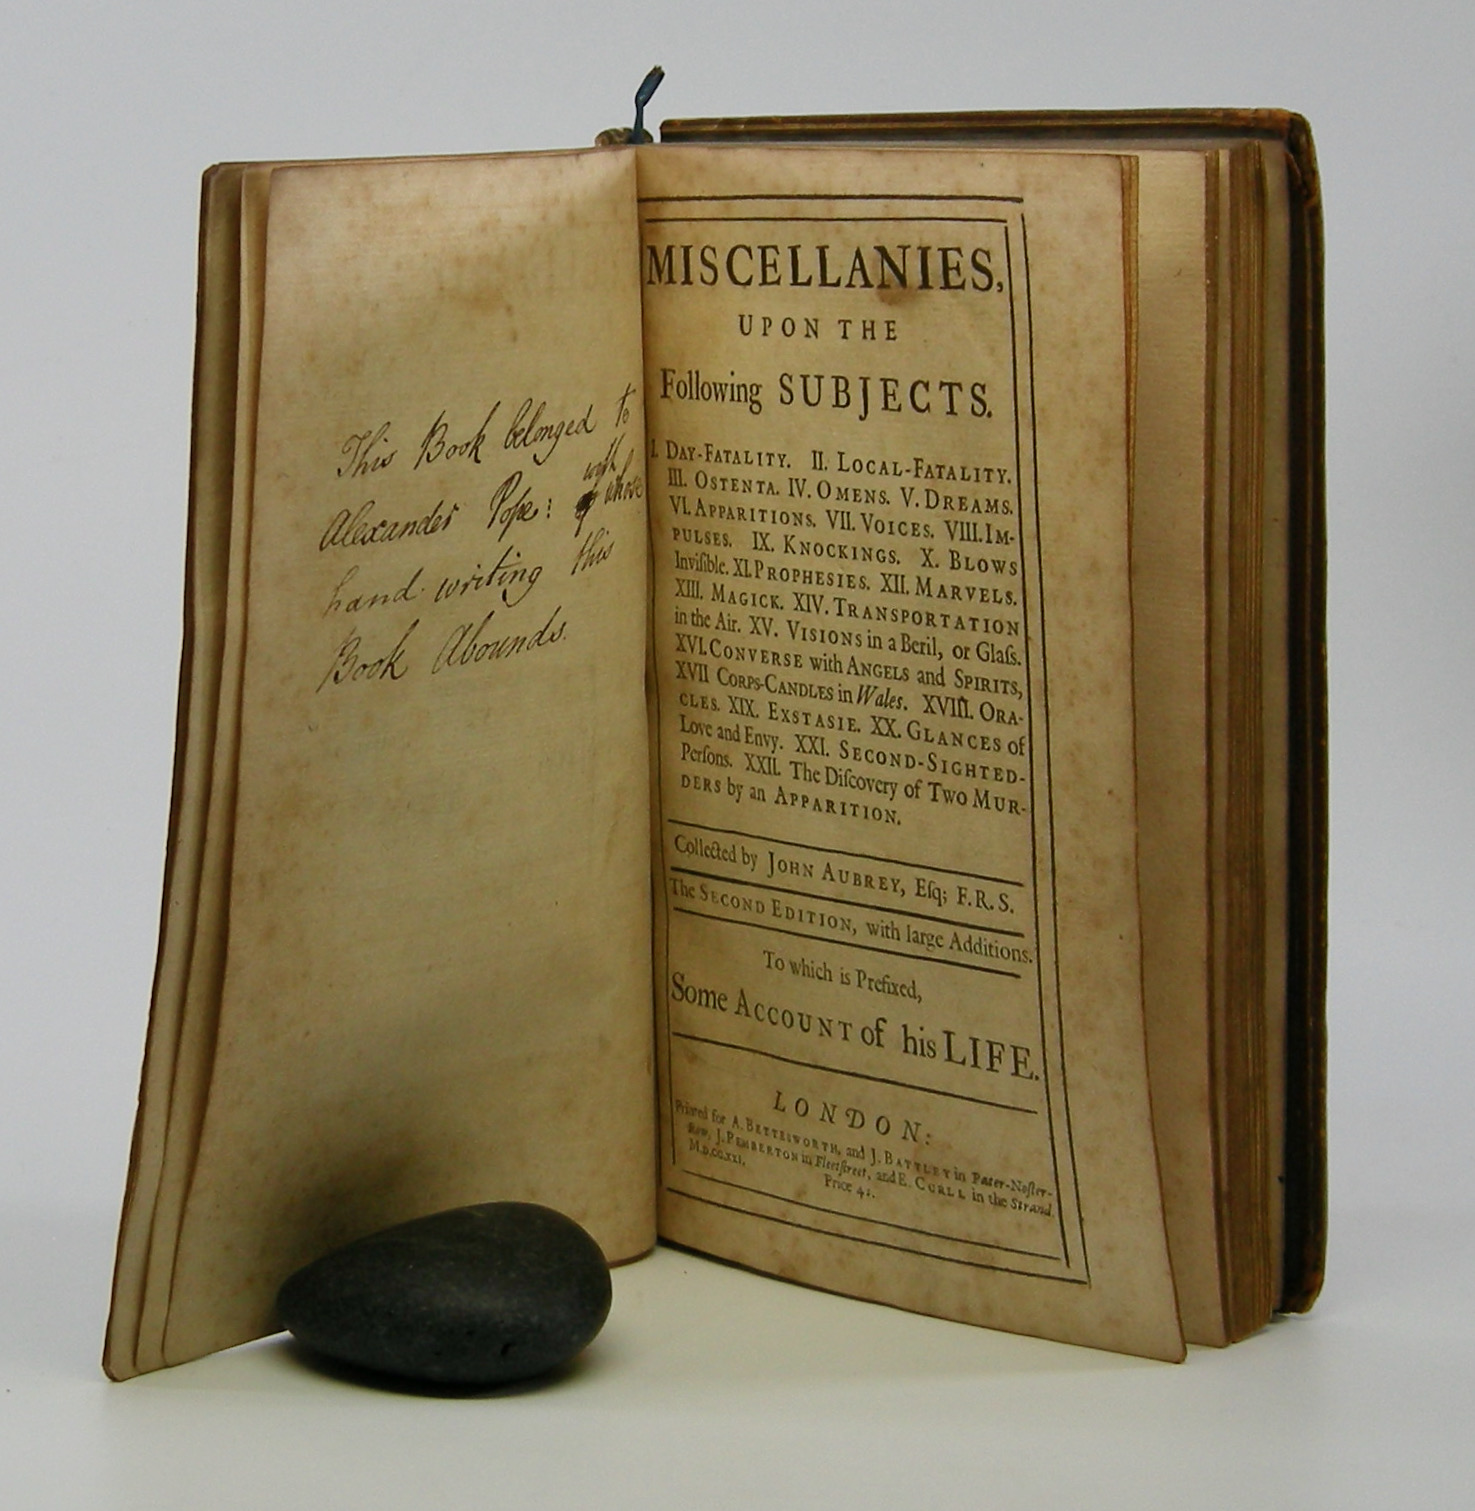 This Book belonged to
Alexander Pope: with whose
hand writing this
Book Abounds.
MISCELLANIES,
UPON THE
Following SUBJECTS.
I. DAY-FATALITY. II. LOCAL-FATALITY.
III. OSTENTA. IV. OMENS. V. DREAMS.
VI. APPARITIONS. VII. VOICES. VIII. IM-
PULSES. IX. KNOCKINGS. X. BLOWS
Inviſible. XI. PROPHESIES. XII. MARVELS.
XIII. MAGICK. XIV. TRANSPORTATION
in the Air. XV. VISIONS in a Beril, or Glaſs.
XVI. CONVERSE with ANGELS and SPIRITS,
XVII CORPS-CANDLES in Wales. XVIII. ORA-
CLES. XIX. EXSTASIE. XX. GLANCES of
Love and Envy. XXI. SECOND-SIGHTED-
Perſons. XXII. The Diſcovery of TWO MUR-
DERS by an APPARITION.
Collected by JOHN AUBREY, Eſq; F.R.S.
The SECOND EDITION, with large Additions.
To which is Prefixed,
Some ACCOUNT of his LIFE.
LONDON:
Printed for A. BETTESWORTH, and J. BATTLEY in Pater-Noſter-
Row, J. PEMBERTON in Fleetſtreet, and E. CURLL in the Strand.
M.DCC.XXI.
Price 4s.